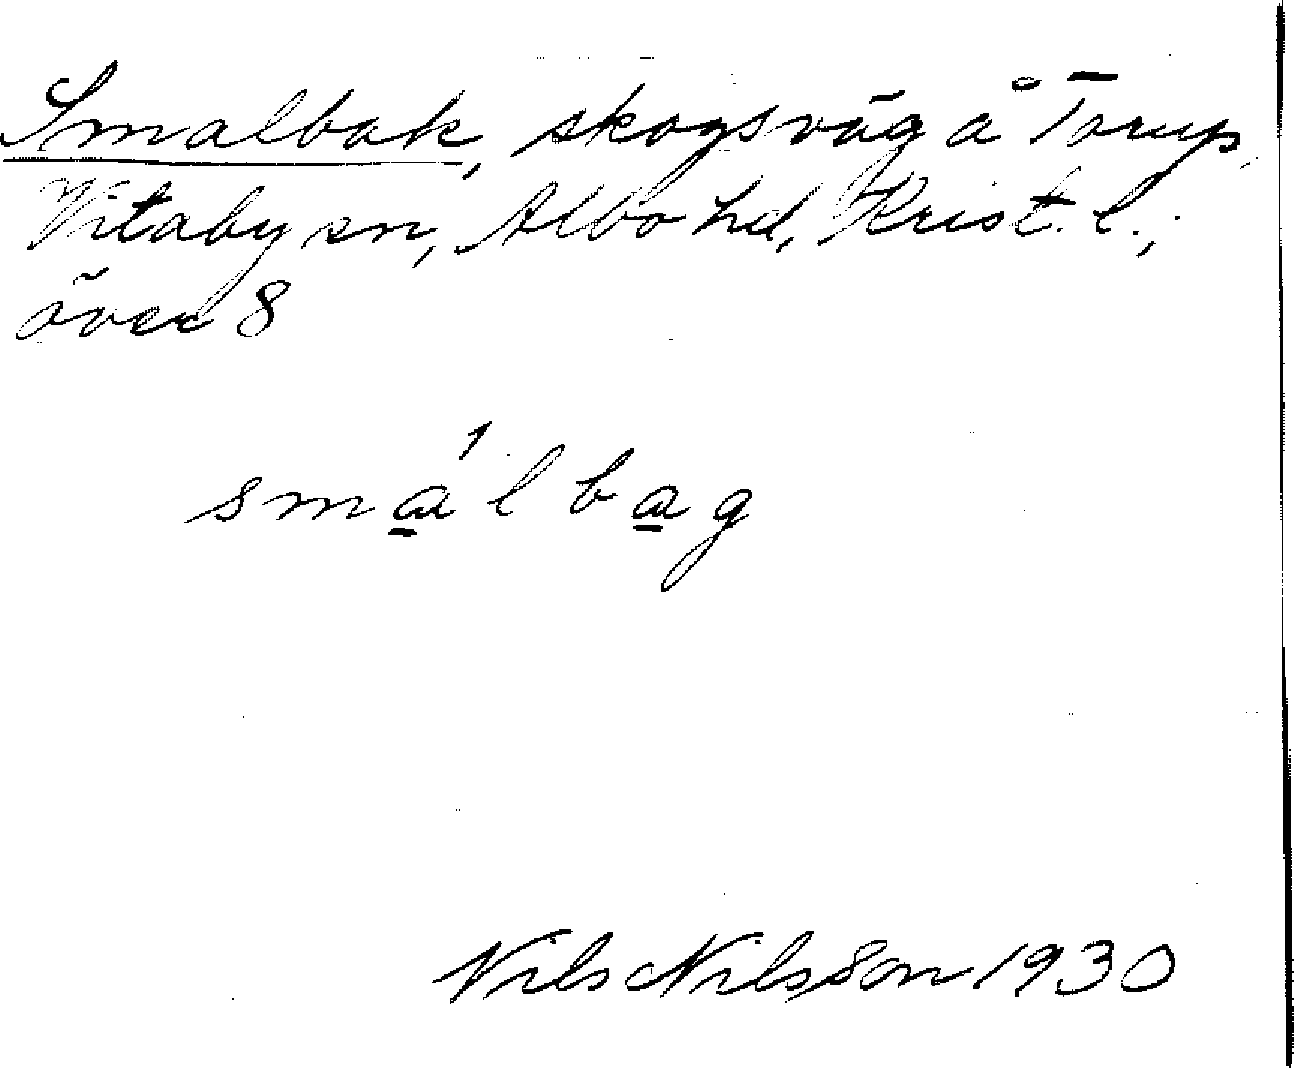 Smalbak, skogsväg å Torup,
Vitaby sn, Albo hd, Krist. l.;
över 8
sma̲´l ba̲g
Nils Nilsson 1930